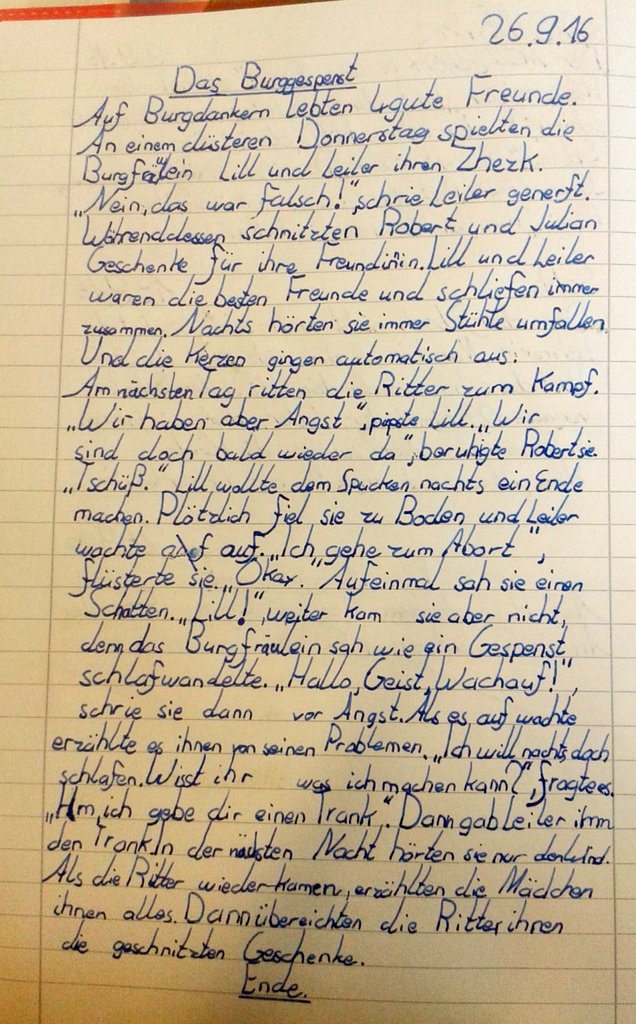 26.9.16
Das Burggespenst
Auf Burgdankern lebten 4 gute Freunde.
An einem düsteren Donnerstag spielten die
Burgfräulein Lill und Leiler ihren Zherk.
„Nein, das war falsch!", schrie Leiler generft.
Währenddessen schnitzten Robert und Julian
Geschenke für ihre Freundinin. Lill und Leiler
waren die besten Freunde und schliefen immer
zusammen. Nachts hörten sie immer Stühle umfallen.
Und die Kerzen gingen automatisch aus.
Am nächsten Tag ritten die Ritter zum Kampf.
„Wir haben aber Angst", piepste Lill. „Wir
sind doch bald wieder da", beruhigte Robert sie.
„Tschüß." Lill wollte dem Spucken nachts ein Ende
machen. Plötzlich fiel sie zu Boden und Leiler
wachte auf. „Ich gehe zum Abort",
flüsterte sie. „Okay." Aufeinmal sah sie einen
Schatten. „Lill!", weiter kam sie aber nicht,
denn das Burgfräulein sah wie ein Gespenst
schlafwandelte. „Hallo, Geist, Wach auf!",
schrie sie dann vor Angst. Als es auf wachte
erzählte es ihnen von seinen Problemen. „Ich will nachts doch
schlafen. Wisst ihr was ich machen kann?", fragte es.
„Hm, ich gebe dir einen Trank". Dann gab Leiler ihm
den Trank. In der nächsten Nacht hörten sie nur den Wind.
Als die Ritter wieder kamen, erzählten die Mädchen
ihnen alles. Dann übereichten die Ritter ihnen
die geschnitzten Geschenke.
Ende.